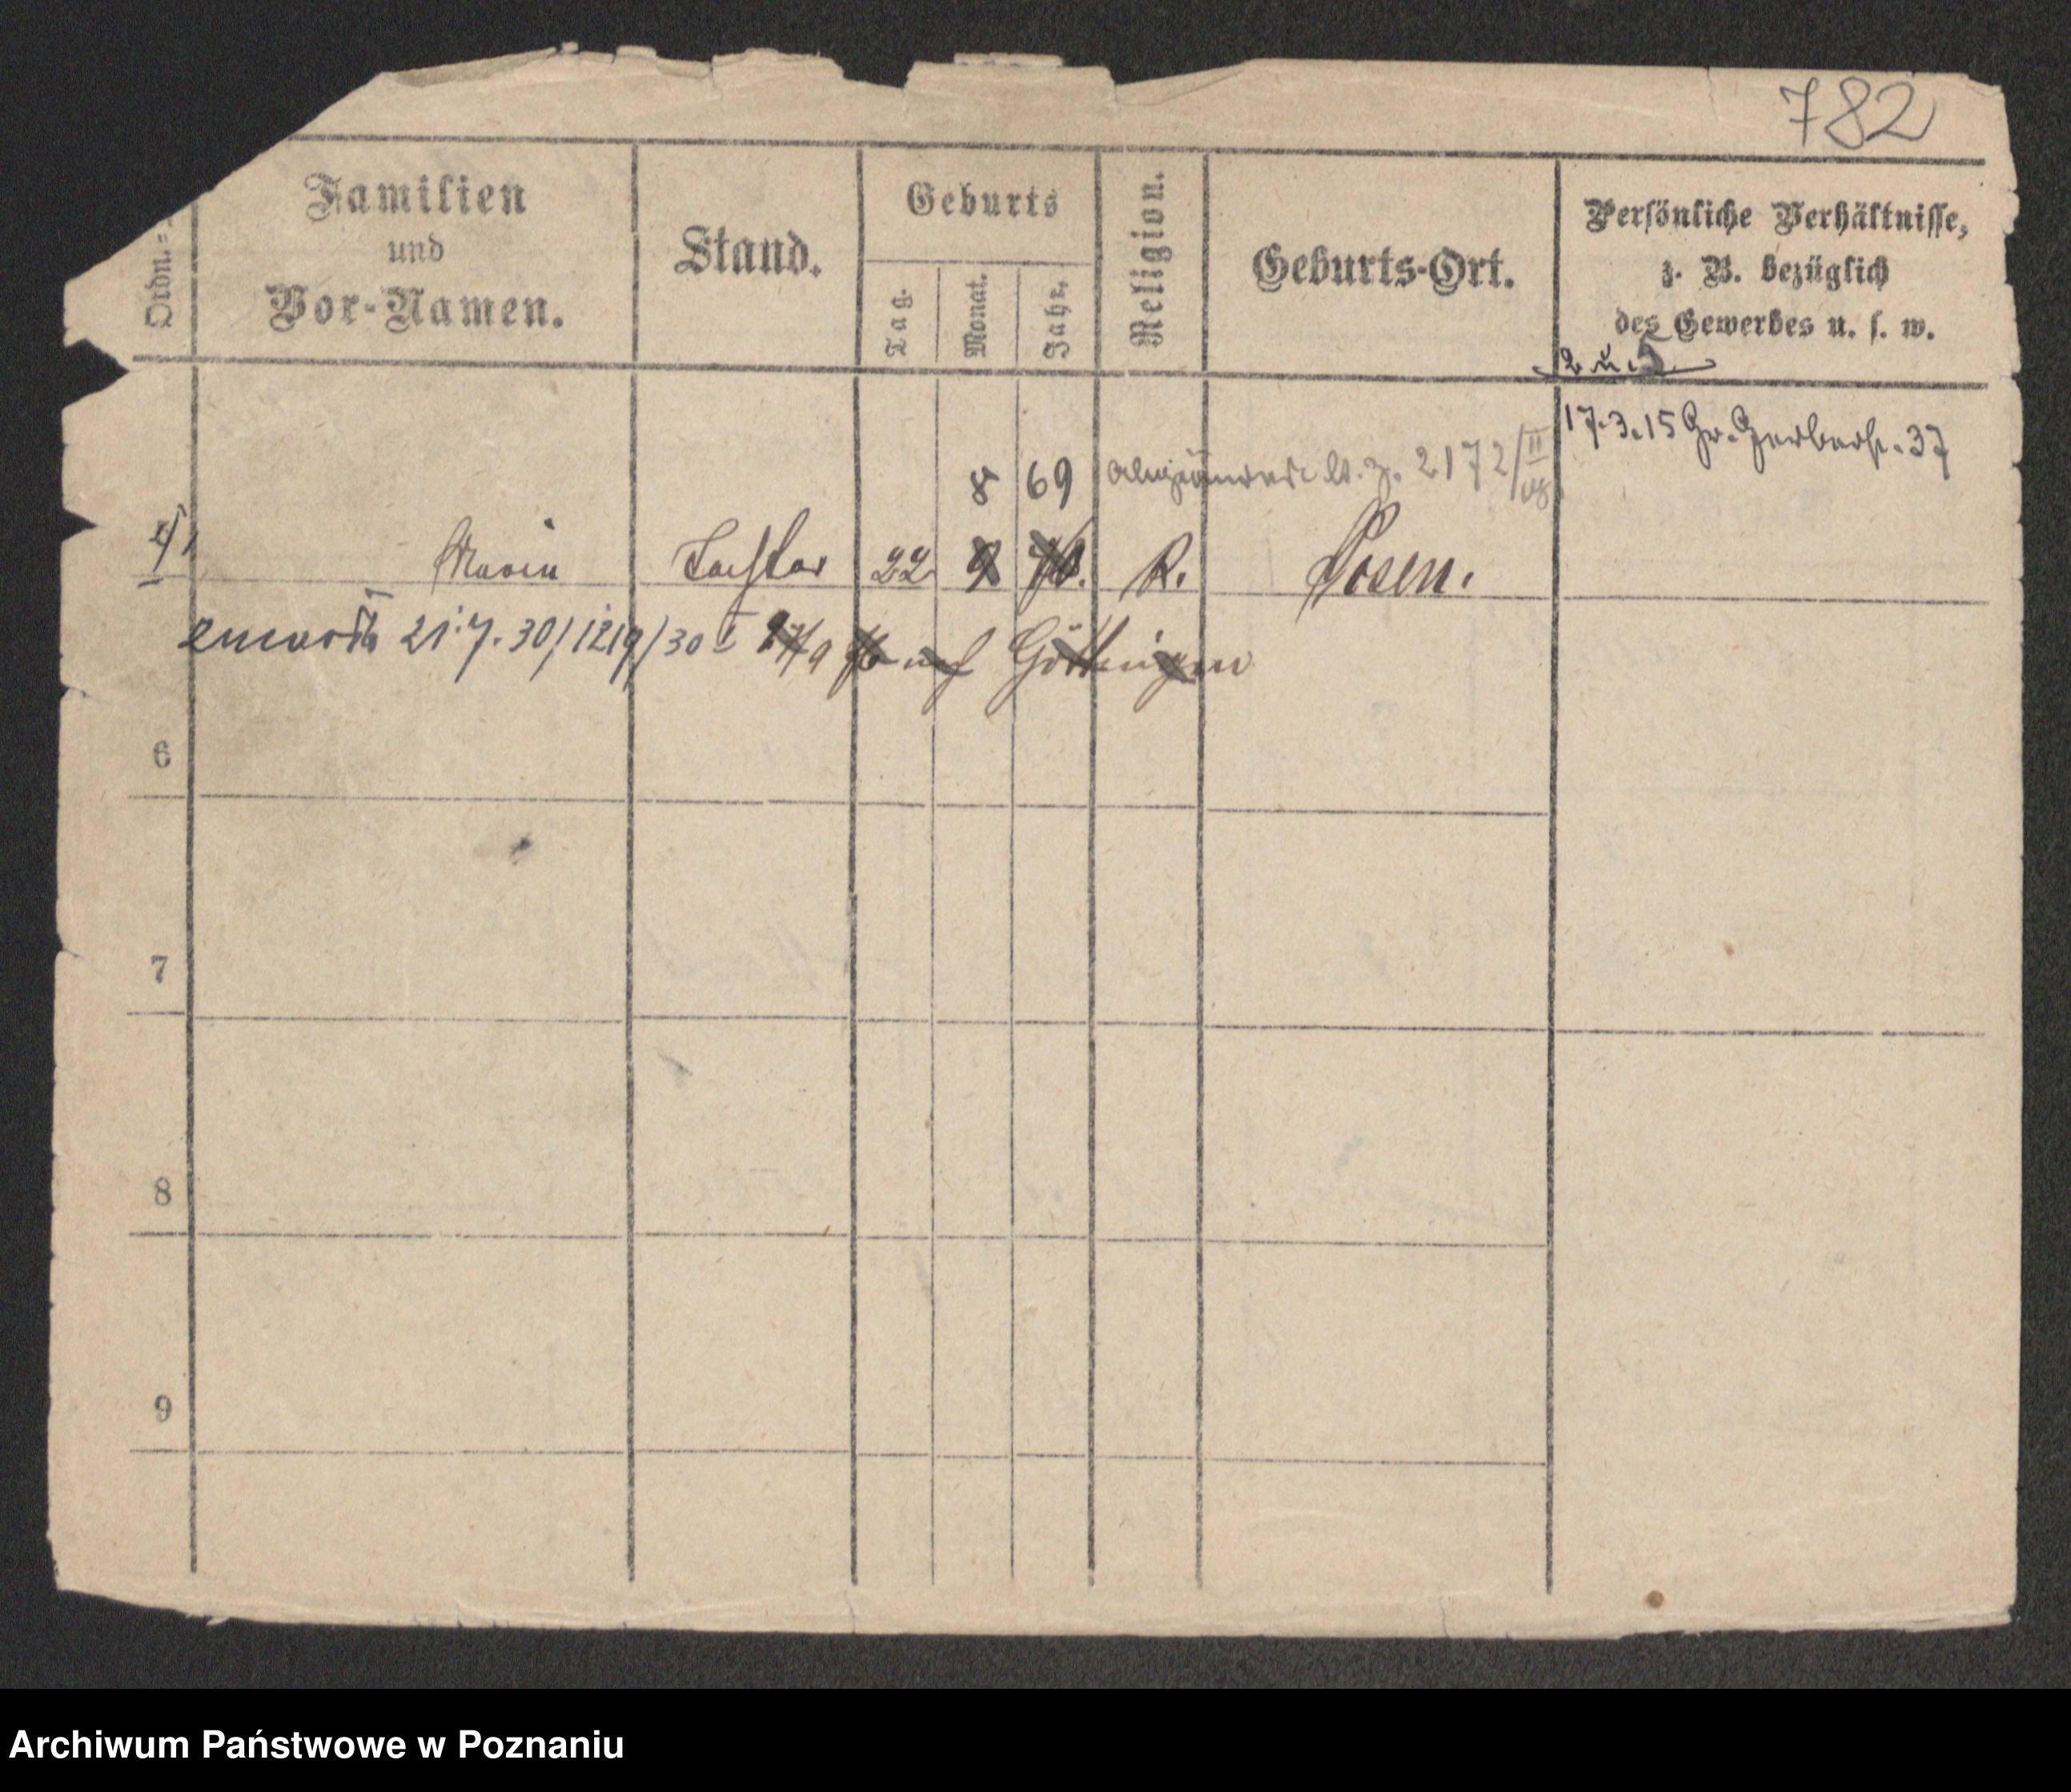 782
Ordn.-
Familien
und
Vor-Namen.
Stand.
Geburts
Tag.
Monat.
Jahr.
Religion.
Geburts-Ort.
Persönliche Verhältnisse,
z. B. bezüglich
des Gewerbes u. s. w.
2 u. 5
17.3.15 Gr. Gerberstr. 37
8 69 2172/II
Maria Tochter 22 9 70. K. Posen.
zmarła 21.7.30/1219/30 I auf Göttingen
6
7
8
9
Archiwum Państwowe w Poznaniu